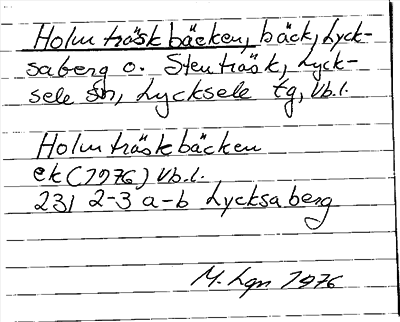 Holmträskbäcken, bäck, Lyck-
saberg o. Stenträsk, Lyck-
sele sn, Lycksele tg, Vb.l.
Holmträskbäcken
ek (1976) Vb.l.
231 2-3 a-b Lycksaberg
M. Lgn 1976